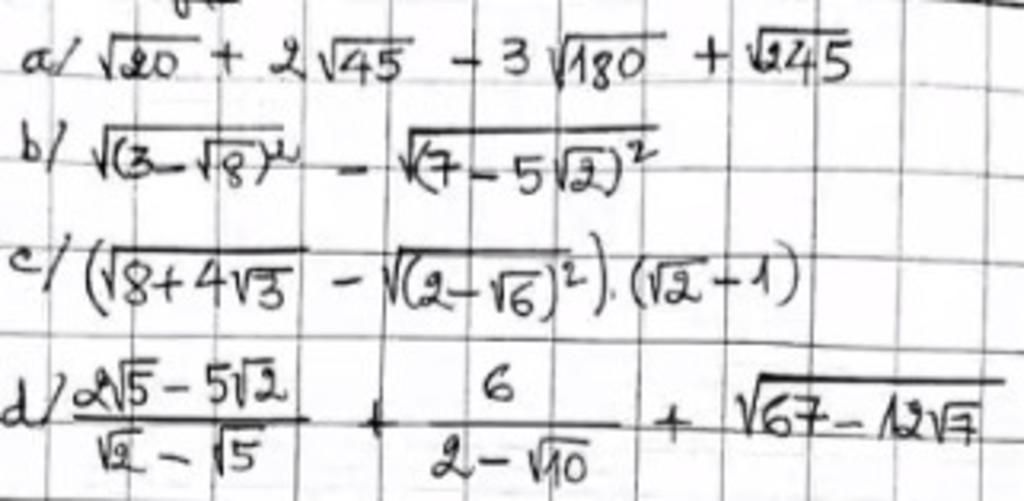 a/ √20 + 2√45 - 3√180 + √245
b/ √(3-√8)² - √(7-5√2)²
c/ (√8+4√3 - √(2-√6)²).(√2-1)
d/ 2√5-5√2 / √2-√5 + 6 / 2-√10 + √67-12√7